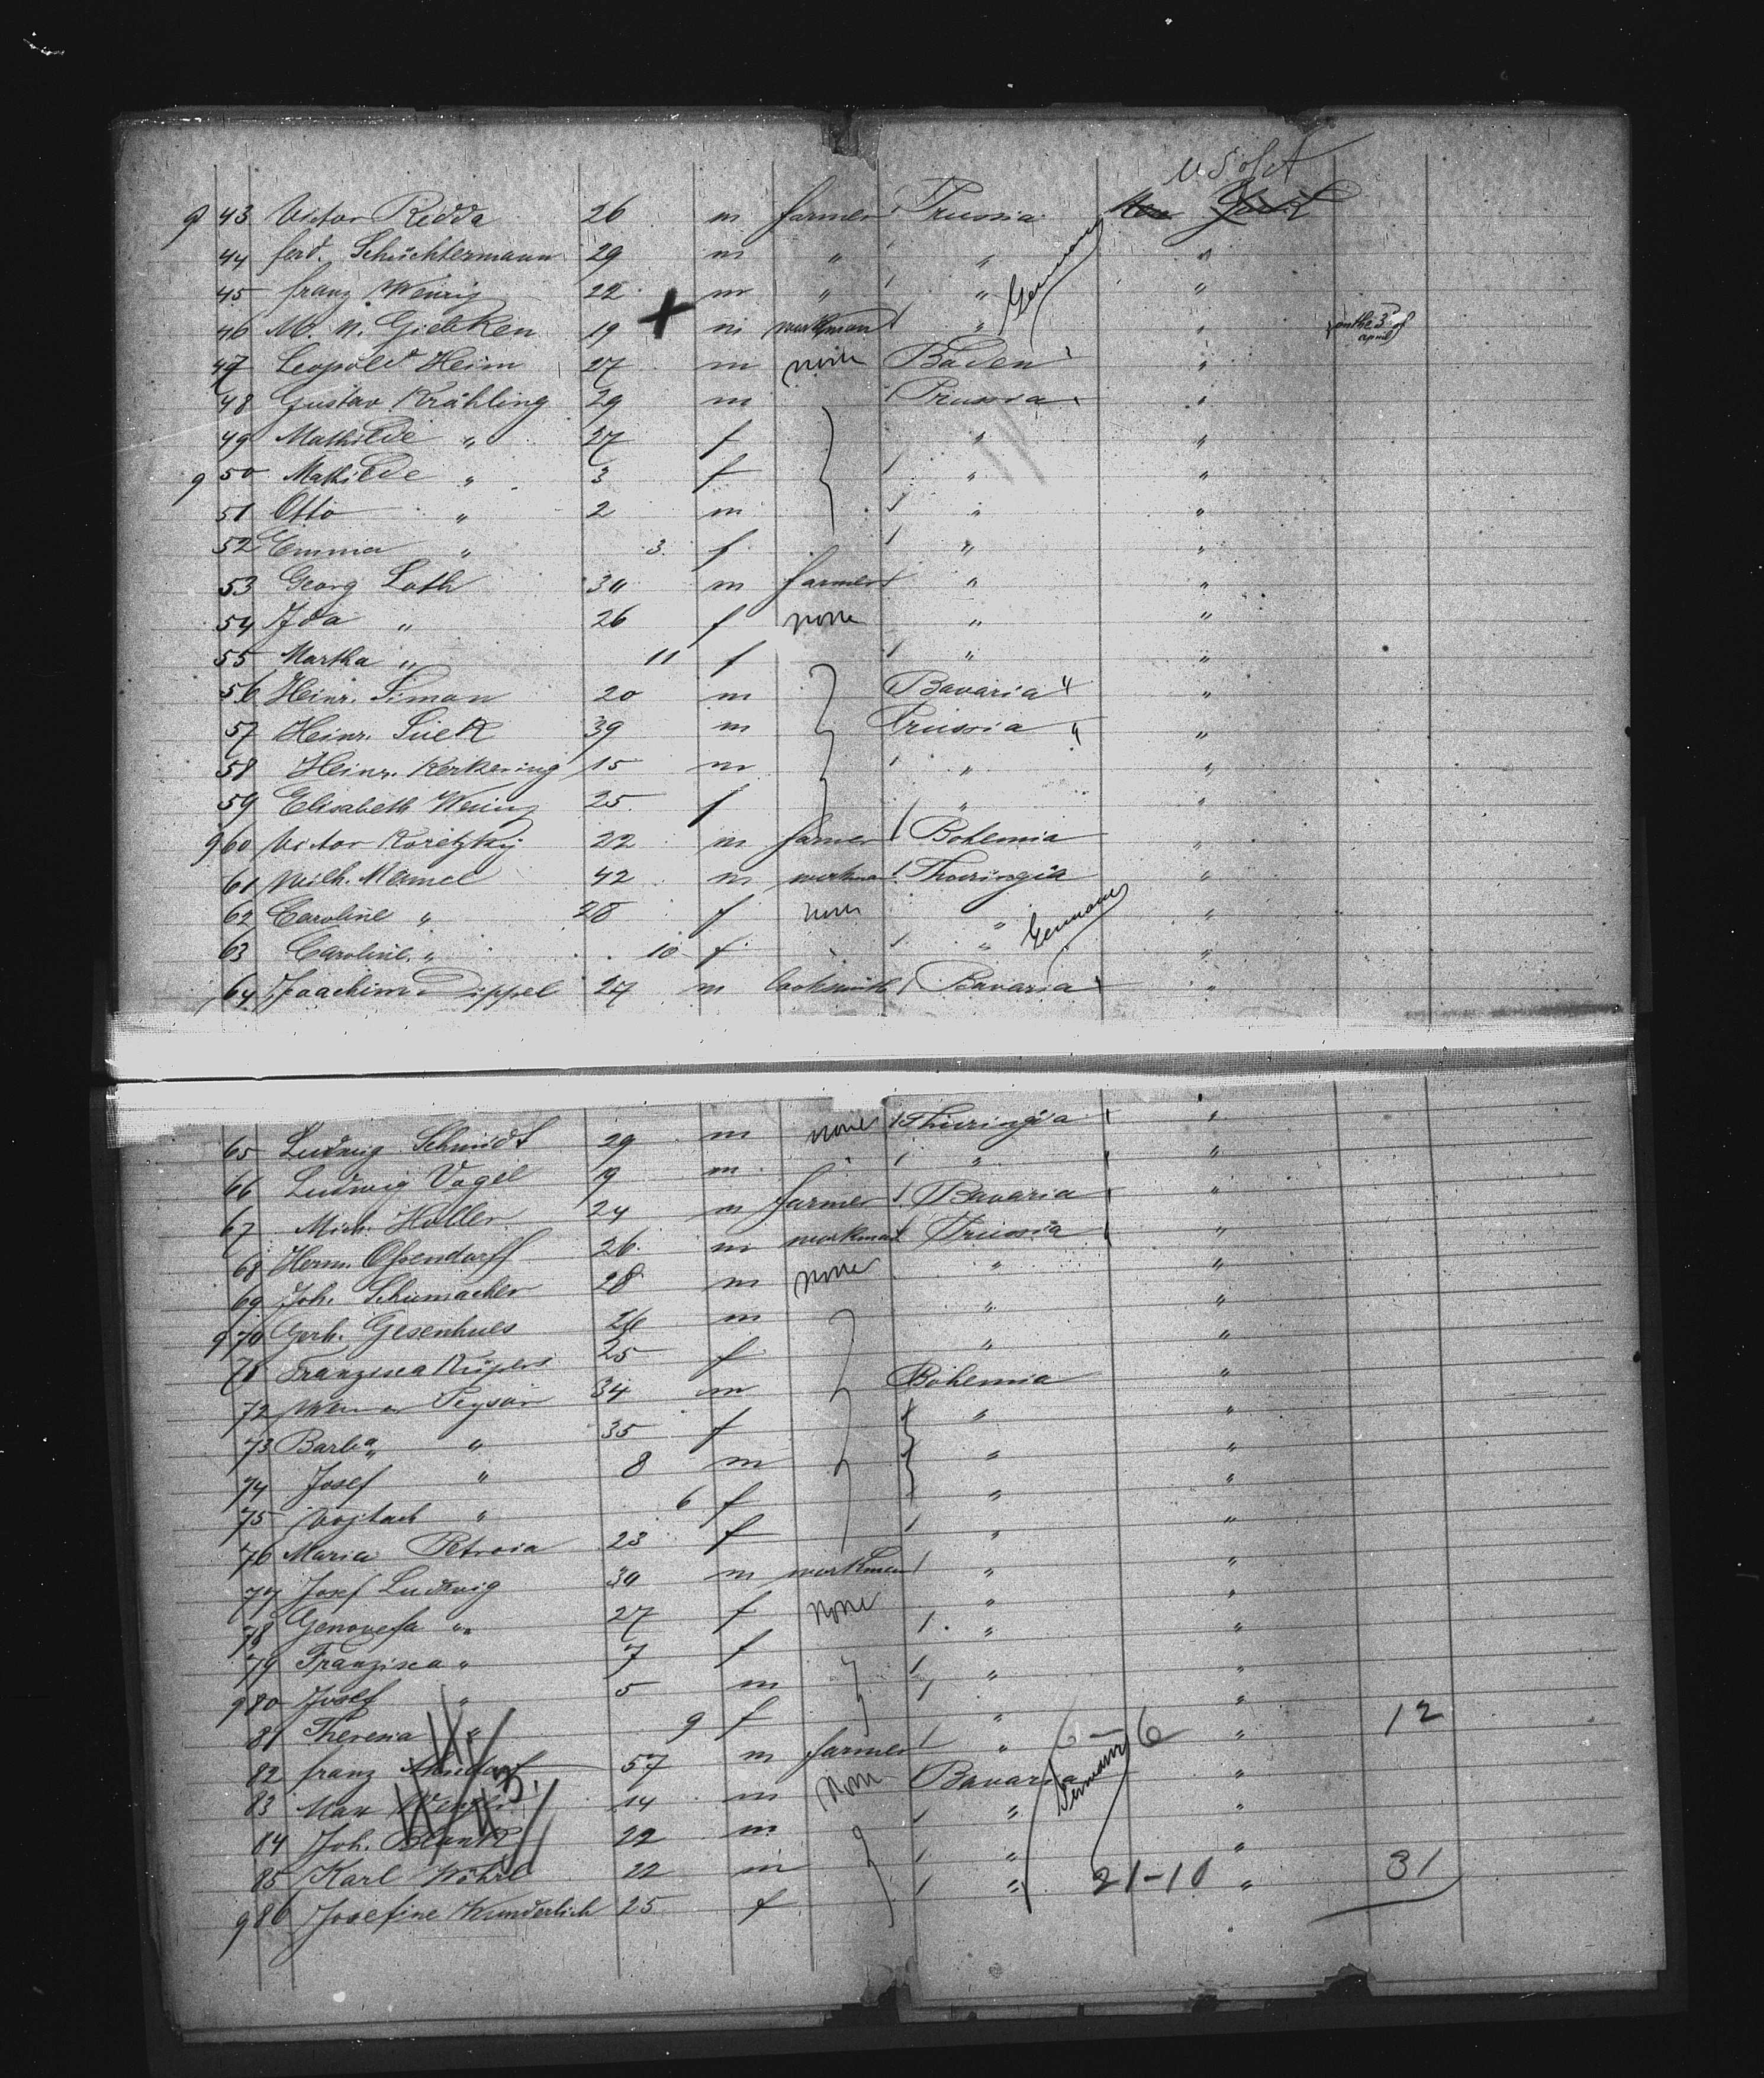 U S of A
9 43 Victor Redda 26 m farmer Prussia New York
44 ferd. Schüchtermann 29 m " " "
45 franz Wenrig 22 m " " Germany "
46 M. N. Giebken 19 m workman " " on the 3d of april
47 Leopold Heim 27 m none Baden "
48 Gustav Krähling 29 m Prussia "
49 Mathilde " 27 f " "
9 50 Mathilde " 3 f " "
51 Otto " 2 m " "
52 Emma " 3 f " "
53 Georg Loth 30 m farmer " "
54 Ida " 26 f none " "
55 Martha " 11 f " "
56 Heinr. Simon 20 m Bavaria "
57 Heinr. Suek 39 m Prussia "
58 Heinr. Kerkering 15 m " "
59 Elisabeth Wening 25 f " "
960 Victor Koretzky 22 m farmer Bohemia "
61 Wilh. Memel 42 m workman Thuringia "
62 Caroline " 28 f none " "
63 Caroline " 10 f " Germany "
64 Joachim Dippel 27 m locksmith Bavaria "
65 Ludwig Schmidt 29 m none Thuringia "
66 Ludwig Vogel 19 m " "
67 Mich. Holler 24 m farmer Bavaria "
68 Herm. Ossendorff 26 m workman Prussia "
69 Joh. Schumacher 28 m none " "
970 Gerh. Gesenhues 26 m " "
71 Franzisca Küpers 25 f " "
72 34 m Bohemia "
73 Barba " 35 f " "
74 Josef " 8 m " "
75 Vojtach " 6 f " "
76 Maria Petroia 23 f " "
77 Josef Ludwig 30 m workman " "
78 Genovefa " 27 f none " "
79 Franzisca " 7 f " "
980 Josef " 5 m " "
81 Theresia " 9 f " " 12
82 franz 57 m farmer " 6-6 "
83 Max 14 m none Bavaria Germany "
84 Joh. Blank 22 m " "
85 Karl Wöhrl 22 m " "
986 Josefine Wunderlich 25 f " 21-10 " 31